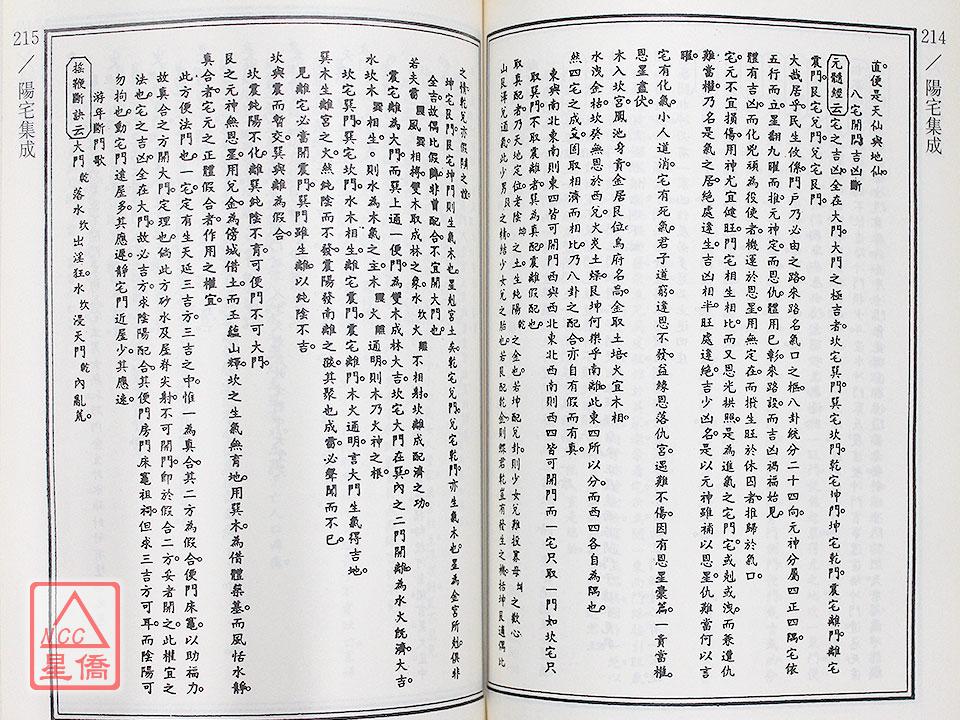 214
陽宅集成
直便是天仙與地仙
八宅開門吉凶斷
元髓經云宅之吉凶全在大門大門之極吉者坎宅巽門巽宅坎門乾宅坤門坤宅乾門震宅離門離宅
震門艮宅兌門兌宅艮門
大哉居乎民生攸係門戶乃必由之路來路名氣口之樞八卦統分二十四向元神分屬四正四隅宅依
五行而立星翻九曜而推元神定而恩仇體用已彰來路設而吉凶禍福始見
體有吉凶而化兇頑為役者機運於恩星用無定在而搬生旺於休囚者推歸於氣口
宅元不宜損傷用神尤宜健旺門宅相生相比而又恩光拱照是為進氣之宅門宅或剋或洩而兼遭仇
難當權乃名是氣之居絕處逢生吉凶相半旺處逢絕吉少凶名是以元神雖補以恩星仇難當何以言
曜
宅有化氣小人道消宅有死氣君子道窮逢恩不發益緣恩落仇宮遇難不傷因有恩星囊篇一貴當權
恩星盡伏
木入坎宮鳳池身貴金居艮位烏府名高金取土培火宜木相
水洩金枯坎癸無恩於西兌火炎土燥艮坤何樂乎南離此東四所以分而西四各自為隅也
然四宅之成爻固取相濟而相比乃八卦之配合亦自有假而有真
東與南北東南則東四皆可開門西與西北東北西南則西四皆可開門而一宅只取一門如坎宅只
取巽門不取震離者巽為真配震離假配也
取真配者乃天地定位老陰坤之土生純陽乾之金也若坤配兌卦則少女兌難投累母坤之歡心
山艮澤兌通氣此少男艮之精結少女兌之胎也若艮配乾金則鰥君乾豈有發生之機括坤艮適偶比
215
陽宅集成
之情乾兌亦假隣之祉
坤宅艮門艮宅坤門則生氣木也星剋宮土矣乾宅兌門兌宅乾門亦生氣木也星為金宮所剋俱非
全吉故偶比假隣非曾配合不宜開大門也
若夫雷震風巽相將雙木取成林之象水坎火離不相射坎離成配濟之功
震宅離為大門而巽上通一便門為雙木成林大吉坎宅大門在巽內之二門開離為水火既濟大吉
水坎木巽相生則水為木氣之主木震火離通明則木乃火神之根
坎宅巽門巽宅坎門水木相生離宅震門震宅離門木火通明言大門生氣得吉地
巽木生離宮之火然純陰而不發震陽發南離之篋其聚也成雷必聲聞而不已
見離宅當開震門巽門雖生離以純陰不吉
坎與震而暫交巽與離為假合
坎震純陽不化離巽純陰不育可便門不可大門
艮之元神無恩星用兌金為傍城借土而玉韞山輝坎之生氣無育地用巽木為借體築基而風恬水靜
真合者宅元之正體假合者作用之權宜
此方便法門也一宅定有生天延三吉方三吉之中惟一為真合其二方為假合便門床竈以助福力
故真合之方開大門定理也倘此方砂水及屋脊尖射不可開門即於假合二方妥者開之此權宜之
法也宅之吉凶全在大門故必吉方求陰陽配合其便門房門床竈祖祠但求三吉方可耳而陰陽可
勿拘也動宅門遠屋多其應遲靜宅門近屋少其應速
游年斷門歌
搖鞭斷訣云大門乾落水坎出淫狂水坎浸天門乾內亂荒
NCC
星僑